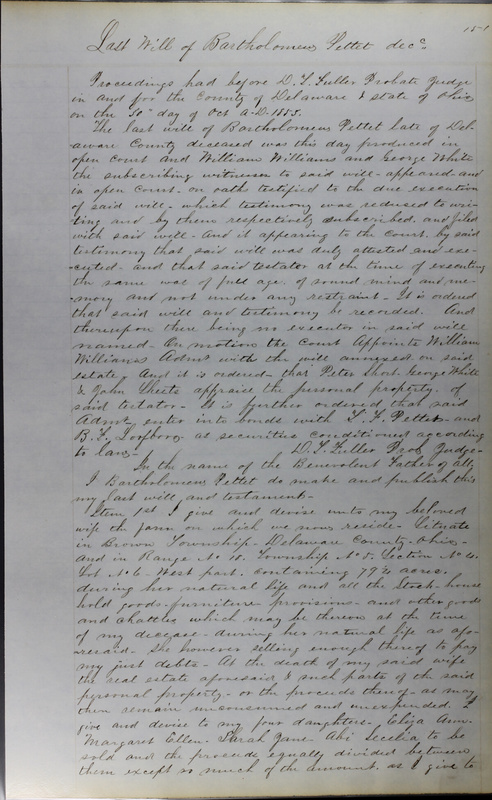 151
Last Will of Bartholomew Pettet decd
Proceedings had before D. T. Fuller Probate Judge
in and for the County of Delaware & state of Ohio
on the 30" day of Oct A.D. 1853.
The last will of Bartholomew Pettet late of Del-
aware County deceased was this day produced in
open court and William Williams and George White
the subscribing witnesses to said will - appeared and
in open court - on oath testified to the due execution
of said will - which testimony was reduced to wri-
ting and by them respectively subscribed, and filed
with said will - And it appearing to the Court by said
testimony that said will was duly attested and exe-
-cuted - and that said testator at the time of executing
the same was of full age, of sound mind and me-
mory and not under any restraint - It is ordered
that said will and testimony be recorded. And
thereupon there being no executor in said will
named - On motion the Court Appoints William
Williams Admr with the will annexed on said
estate, And it is ordered - that Peter Short George White
& John Sheets appraise the personal property of
said testator - It is further ordered that said
Admr enter into bonds with L. F. Pettet and
B. F. as securities conditioned according
to law - D. T. Fuller Prob Judge -
In the name of the Benevolent Father of all,
I Bartholomew Pettet do make and publish this
my last will and testament -
Item 1st I give and devise unto my beloved
wife the farm on which we now reside - Situate
in Brown Township - Delaware County - Ohio -
and in Range No 18. Township No 5. Section No 4.
Lot No 6 - West part. containing 79½ acres.
during her natural life and all the Stock - house
hold goods - furniture provisions - and other goods
and chattles which may be thereon at the time
of my decease - during her natural life as afo-
-resaid - She however selling enough thereof to pay
my just debts - At the death of my said wife
the real estate aforesaid & such parts of the said
personal property - or the proceeds thereof - as may
then remain unconsumed and unexpended. I
give and devise to my four daughters - Eliza Ann -
Margaret Ellen - Sarah Jane - Abi Secelia to be
sold and the proceeds equally divided between
them except so much of the amount, as I give to